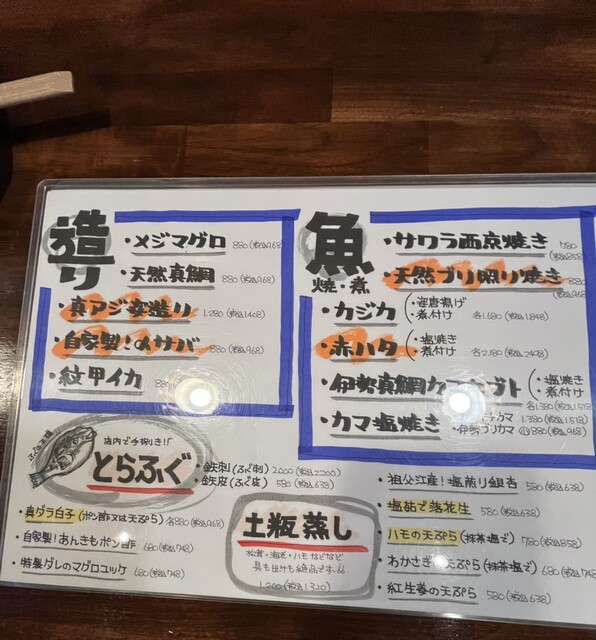 造り
・メジマグロ 880(税込968)
・天然真鯛 880(税込968)
・真アジ姿造り 1.280(税込1.408)
・自家製！〆サバ 880(税込968)
・紋甲イカ 880
魚
焼・煮
・サワラ西京焼き 780(税込858)
・天然ブリ照り焼き 880(税込968)
・カジカ(・姿唐揚げ ・煮付け 各1.680(税込1.848)
・赤ハタ(・塩焼き ・煮付け 各2.180(税込2.408)
・伊勢真鯛カマカブト(・塩焼き ・煮付け 各1.380(税込1.518)
・カマ塩焼き カマ 1.380(税込1.518)
・伊勢ブリカマ 880(税込968)
ふぐ注意
店内で手捌き！！
とらふぐ
・鉄刺(ふぐ刺) 2.000(税込2.200)
・鉄皮(ふぐ皮) 580(税込638)
・真ダラ白子(ポン酢又は天ぷら) 各880(税込968)
・自家製！あんきもポン酢 680(税込748)
・特製ダレのマグロユッケ 680(税込748)
土瓶蒸し
松茸・海老・ハモなどなど
具も出汁も絶品です
1.200(税込1.320)
・祖父江産！塩煎り銀杏 580(税込638)
・塩茹で落花生 580(税込638)
・ハモの天ぷら(抹茶塩で) 780(税込858)
・わかさぎ天ぷら(抹茶塩で) 680(税込748)
・紅生姜の天ぷら 580(税込638)